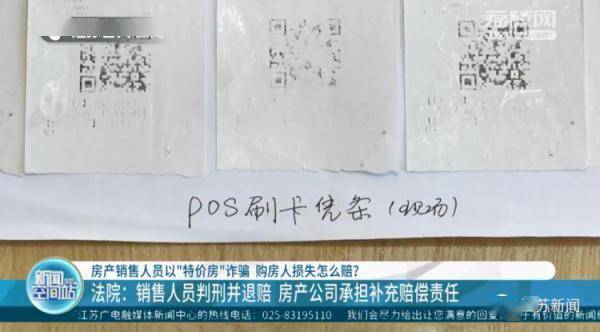 荔枝网
POS刷卡凭条(现场)
新闻
空间站
房产销售人员以"特价房"诈骗 购房人损失怎么赔?
法院:销售人员判刑并退赔 房产公司承担补充赔偿责任
江苏广电融媒体新闻中心的热线电话:025-83195110 我们会尽力给出让您满意的回复
于有价值的新闻
苏新闻